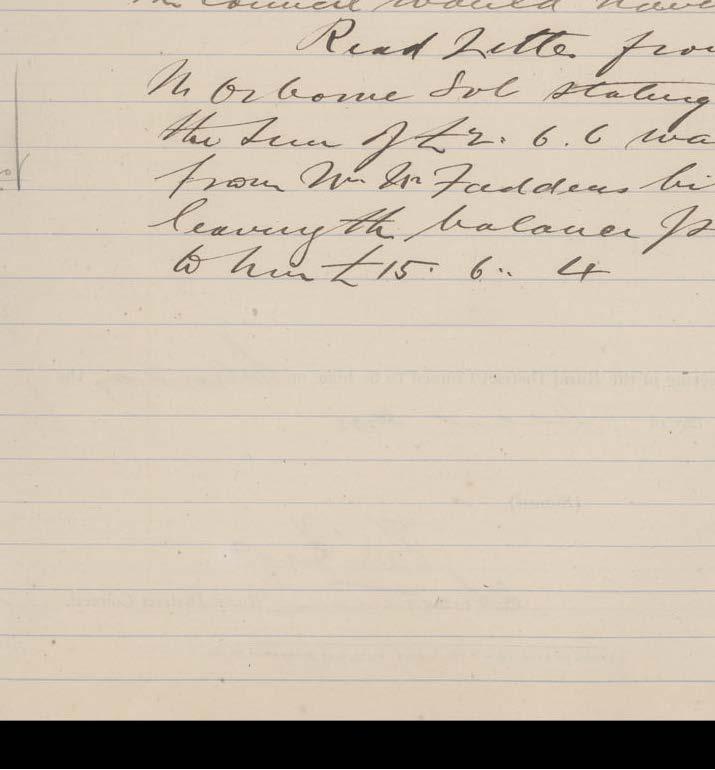 the Council would have
Read Letter from
M Osborne Sol stating
the Sum of £2. 6. 6 wa
from Wm McFaddens bi
leaving the balance
to him £15. 6.. 4